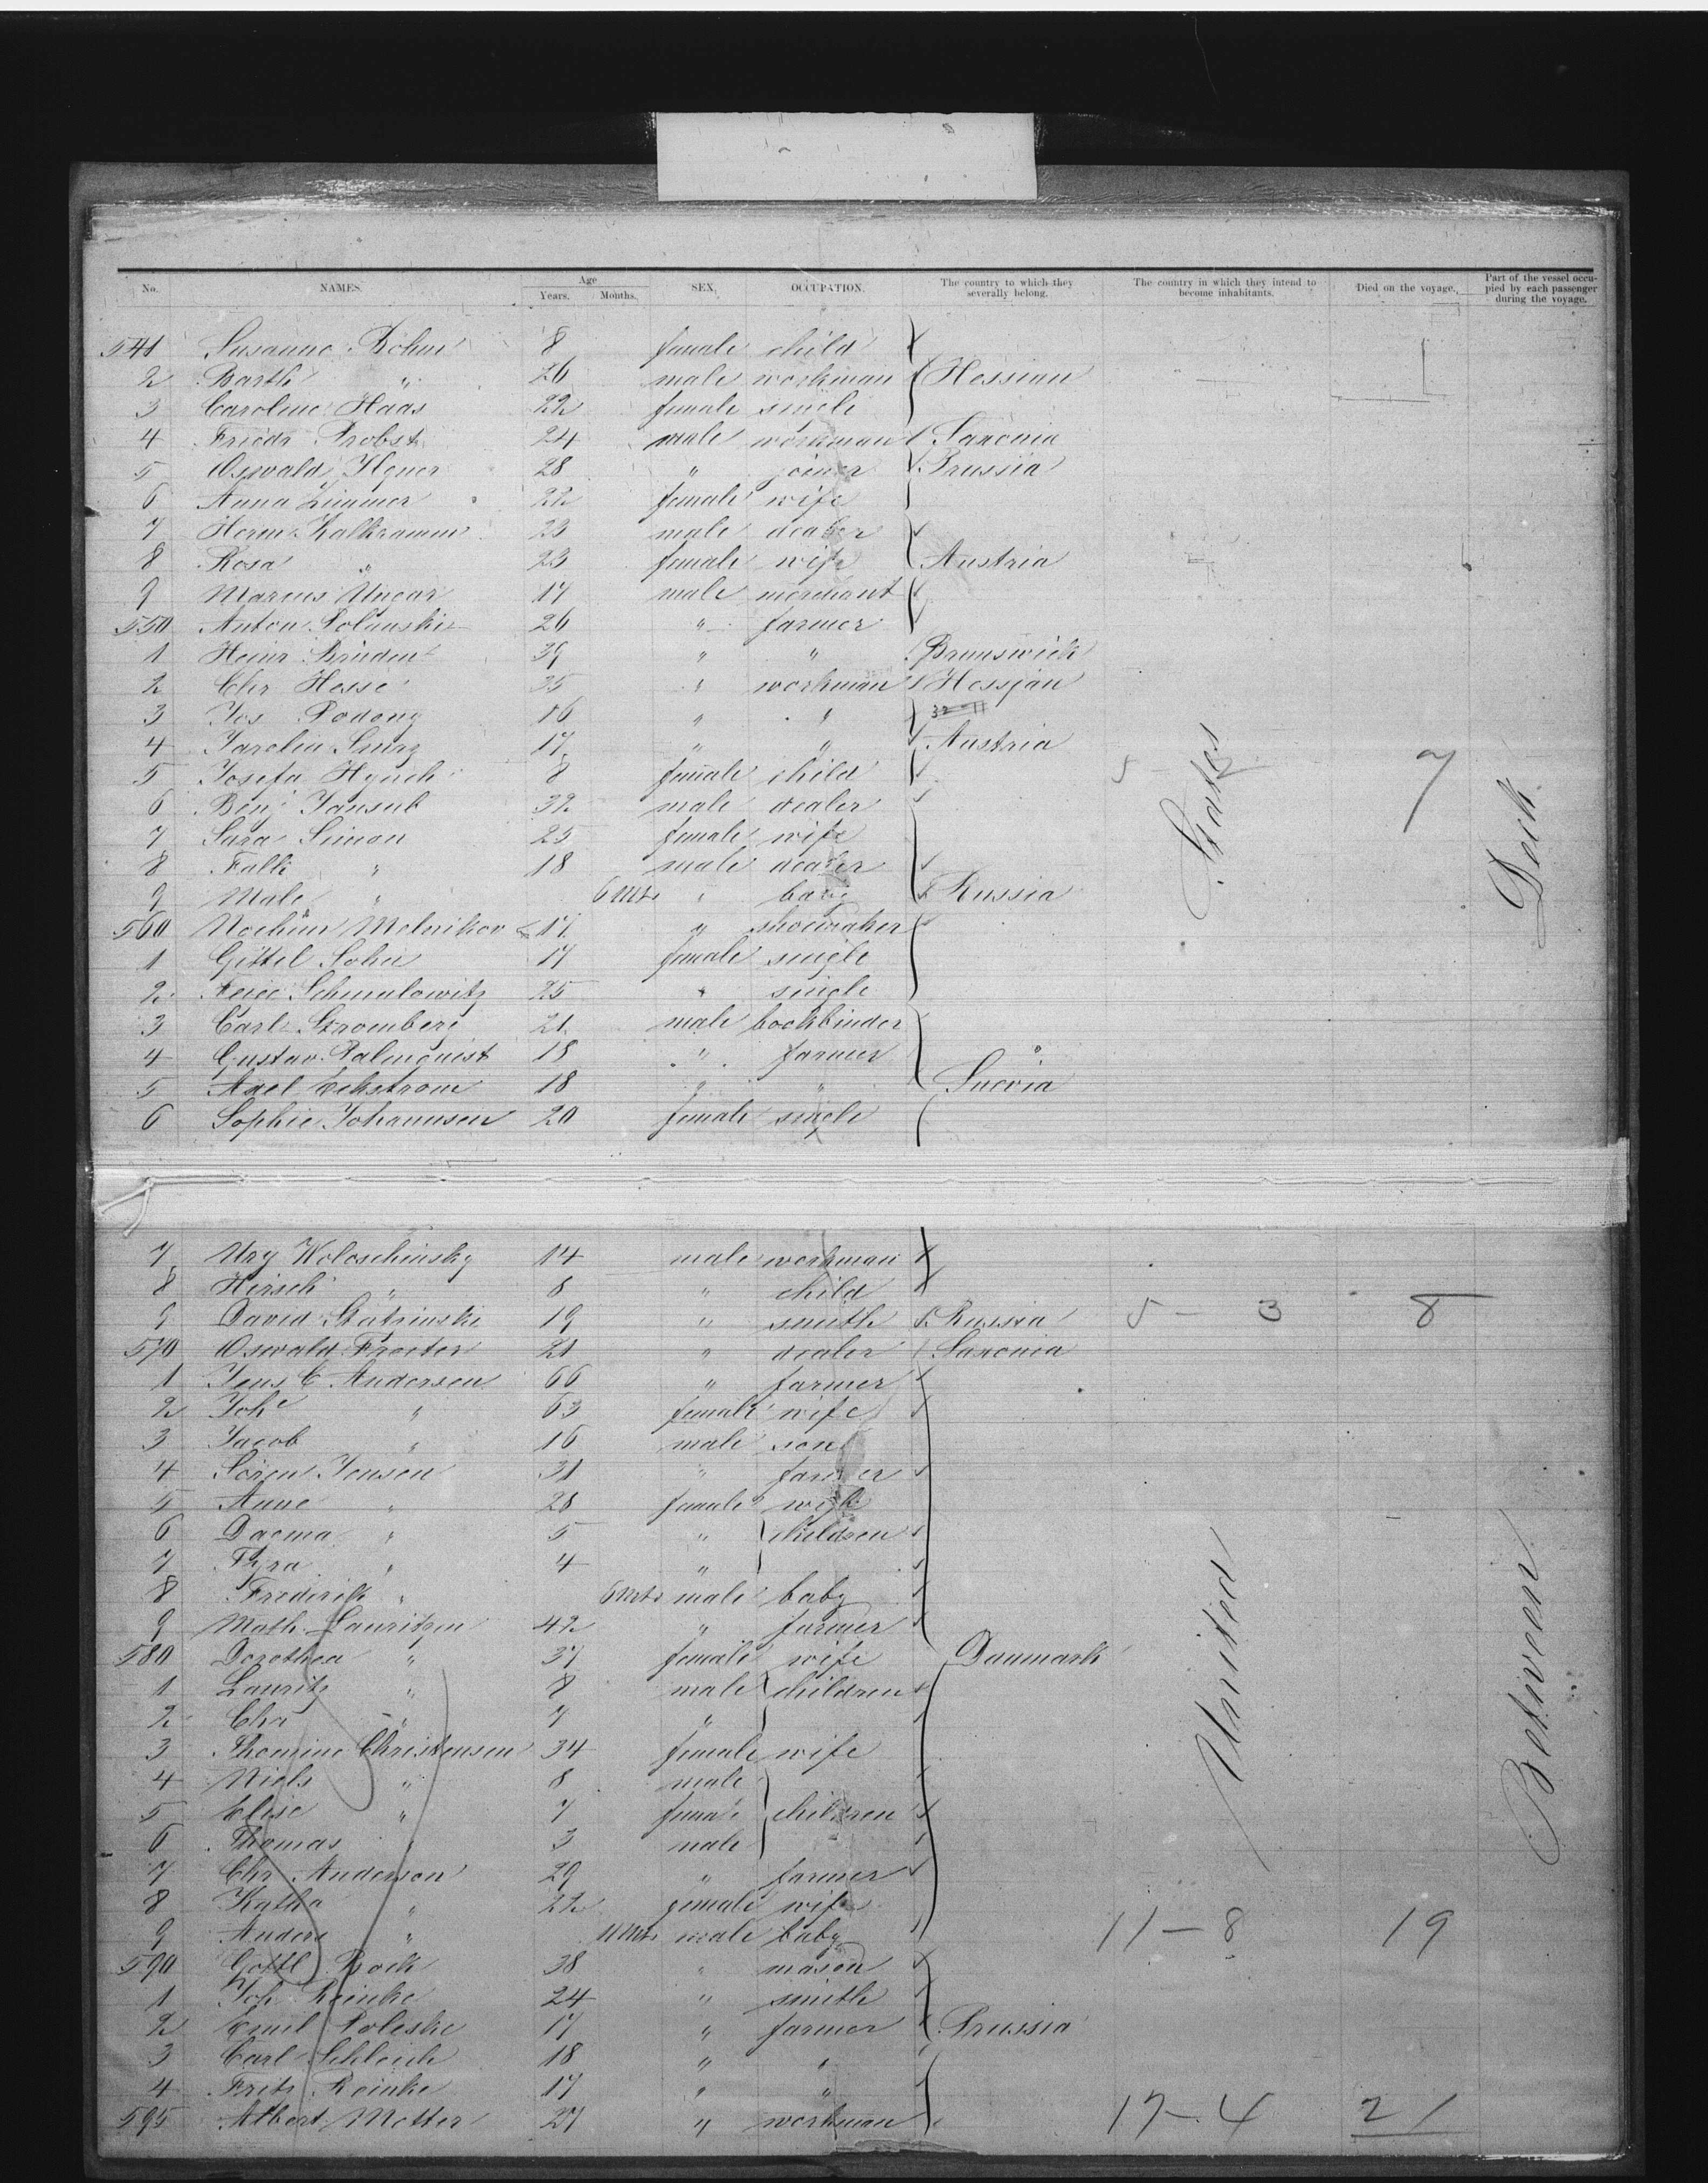 No. NAMES. Age Years. Months. SEX. OCCUPATION. The country to which they severally belong. The country in which they intend to become inhabitants. Died on the voyage. Part of the vessel occupied by each passenger during the voyage.
541 Susanne Böhm 8 female child
2 Barth " 26 male workman Hessian
3 Caroline Haas 22 female single
4 Friedr Probst 24 male workman Saxonia
5 Oswald 28 " joiner Prussia
6 Anna Zimmer 22 female wife
7 Herm Kalkramm 23 male dealer
8 Rosa " 23 female wife Austria
9 Marcus Ungar 17 male merchant
550 Anton Polanski 26 " farmer
1 Heinr Bruden 39 " " Brunswick
2 Chr Hesse 35 " workman Hessian
3 Jos Podony 16 " "
4 17 " " Austria
5 Josefa Hynek 8 female child
6 Benj Jansub 32 male dealer
7 Sara Simon 25 female wife
8 Falk " 18 male dealer
9 Male " 6 Mts " baby Russia
560 Nochum Melnikov 17 " shoemaker
1 Gittel Sohn 17 female single
2 Schmulowitz 25 " single
3 Carl Stromberg 21 male bookbinder
4 Gustav Palmquist 18 " farmer
5 Axel Eckstrom 18 " " Suevia
6 Sophie Johannsen 20 female single
7 Ury Woloschinsky 14 male workman
8 Hirsch " 8 " child
9 David 19 " smith Russia 5 - 3 8
570 Oswald 21 " dealer Saxonia
1 Jens C Andersen 66 " farmer
2 Joh " 63 female wife
3 Jacob " 16 male son
4 Sören Jensen 31 " farmer
5 Anne " 28 female wife
6 Dagma " 5 " children
7 Thyra " 4 "
8 Frederik " 6 Mts male baby
9 Math Lauritzen 42 " farmer
580 Dorothea " 37 female wife Danmark
1 Lauritz " 8 male children
2 Chr " 7 "
3 Thomine Christensen 34 female wife
4 Niels " 8 male
5 Elise " 7 female children
6 Thomas " 3 male
7 Chr Anderson 29 " farmer
8 Katha " 22 female wife
9 Anders " 11 Mts male baby 11 - 8 19
590 Gottl Bock 38 " mason
1 Joh Reinke 24 " smith
2 Emil Poleske 17 " farmer Prussia
3 Carl Schleich 18 " "
4 Fritz Reinke 17 " "
595 Albert Motter 27 " workman 17 - 4 21
United States
7
Between Deck